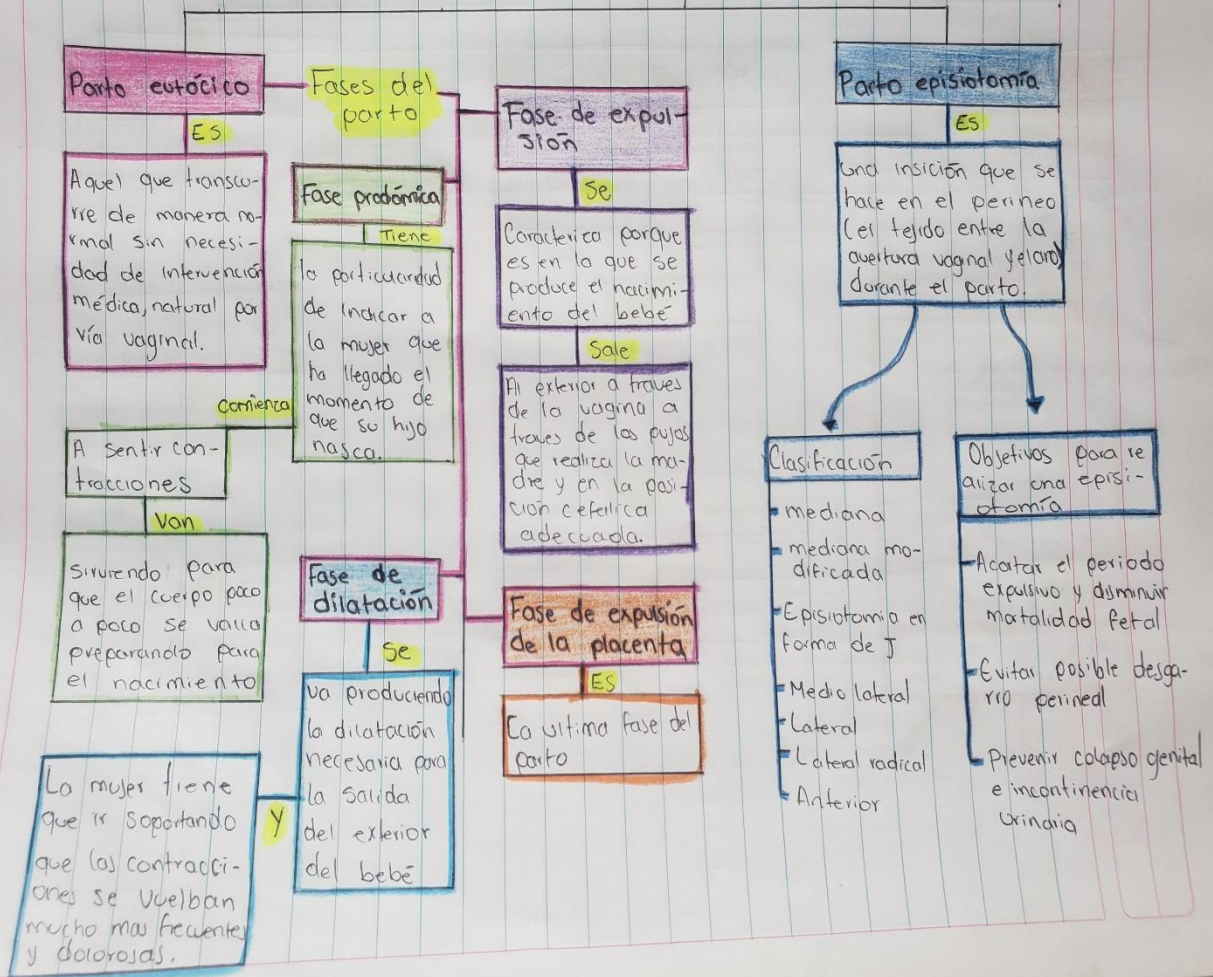 Parto eutócico
ES
Aquel que transcu-
rre de manera no-
rmal sin necesi-
dad de intervención
médica, natural por
vía vaginal.
Fases del
parto
Fase prodómica
Tiene
la particularidad
de indicar a
la mujer que
ha llegado el
momento de
que su hijo
nasca.
comienza
A sentir con-
tracciones
Van
sirviendo para
que el cuerpo poco
a poco se valla
preparando para
el nacimiento
Fase de
dilatación
Se
va produciendo
la dilatación
necesaria para
la salida
del exterior
del bebé
Y
La mujer tiene
que ir soportando
que las contracci-
ones se vuelban
mucho mas frecuentes
y dolorosas.
Fase de expul-
sión
Se
Caracterica porque
es en la que se
produce el nacimi-
ento del bebé
Sale
Al exterior a traves
de la vagina a
traves de los pujos
que realiza la ma-
dre y en la posi-
ción cefelica
adecuada.
Fase de expulsión
de la placenta
ES
La ultima fase del
parto
Parto episiotomía
ES
una insición que se
hace en el perineo
(el tejido entre la
avertura vaginal y el ano)
durante el parto.
Clasificación
mediana
mediana mo-
dificada
Episiotomia en
forma de J
Medio lateral
Lateral
Lateral radical
Anterior
Objetivos para re
alizar una episi-
otomía
Acortar el periodo
expulsivo y disminuir
mortalidad fetal
Evitar posible desga-
rro perineal
Prevenir colapso genital
e incontinencia
urinaria